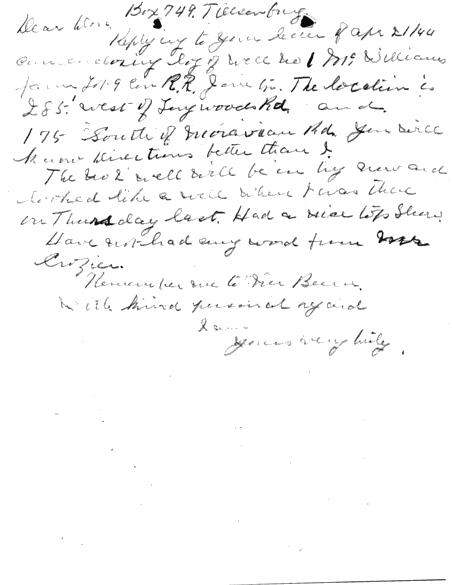 Box 749. Tillsonburg
Dear Don.
Replying to your letter of Apr 21/44
am enclosing log of well No 1 Mc Williams
farm Lot 9 Con R.R. The location is
285' west of Longwoods Rd. and
175 South of Moravian Rd. You will
know directions better than I.
The No 2 well will be in by now and
looked like a well when I was there
on Thursday last. Had a nice top show
Have not had any word from Mr
Crozier.
Remember me to
With kind personal regard
I am
Yours very truly,